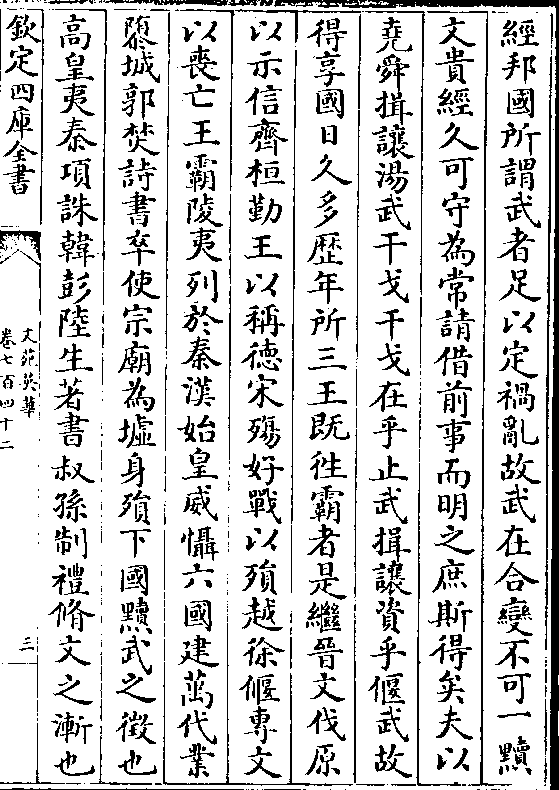 經邦國所謂武者足以定禍亂故武在合變不可一黷
文貴經久可守為常請借前事而明之庶斯得矣夫以
堯舜揖讓湯武干戈干戈在乎止武揖讓資乎偃武故
得享國日久多歴年所三王既徃霸者是繼晉文伐原
以示信齊桓勤王以稱德宋殤好戰以殞越徐偃専文
以喪亡王霸陵夷列於秦漢始皇威懾六國建萬代業
隳城郭焚詩書卒使宗廟為墟身殞下國黷武之徴也
高皇夷秦項誅韓彭陸生著書叔孫制禮脩文之漸也
欽定四庫全書
文苑英華
卷七百四十二
三